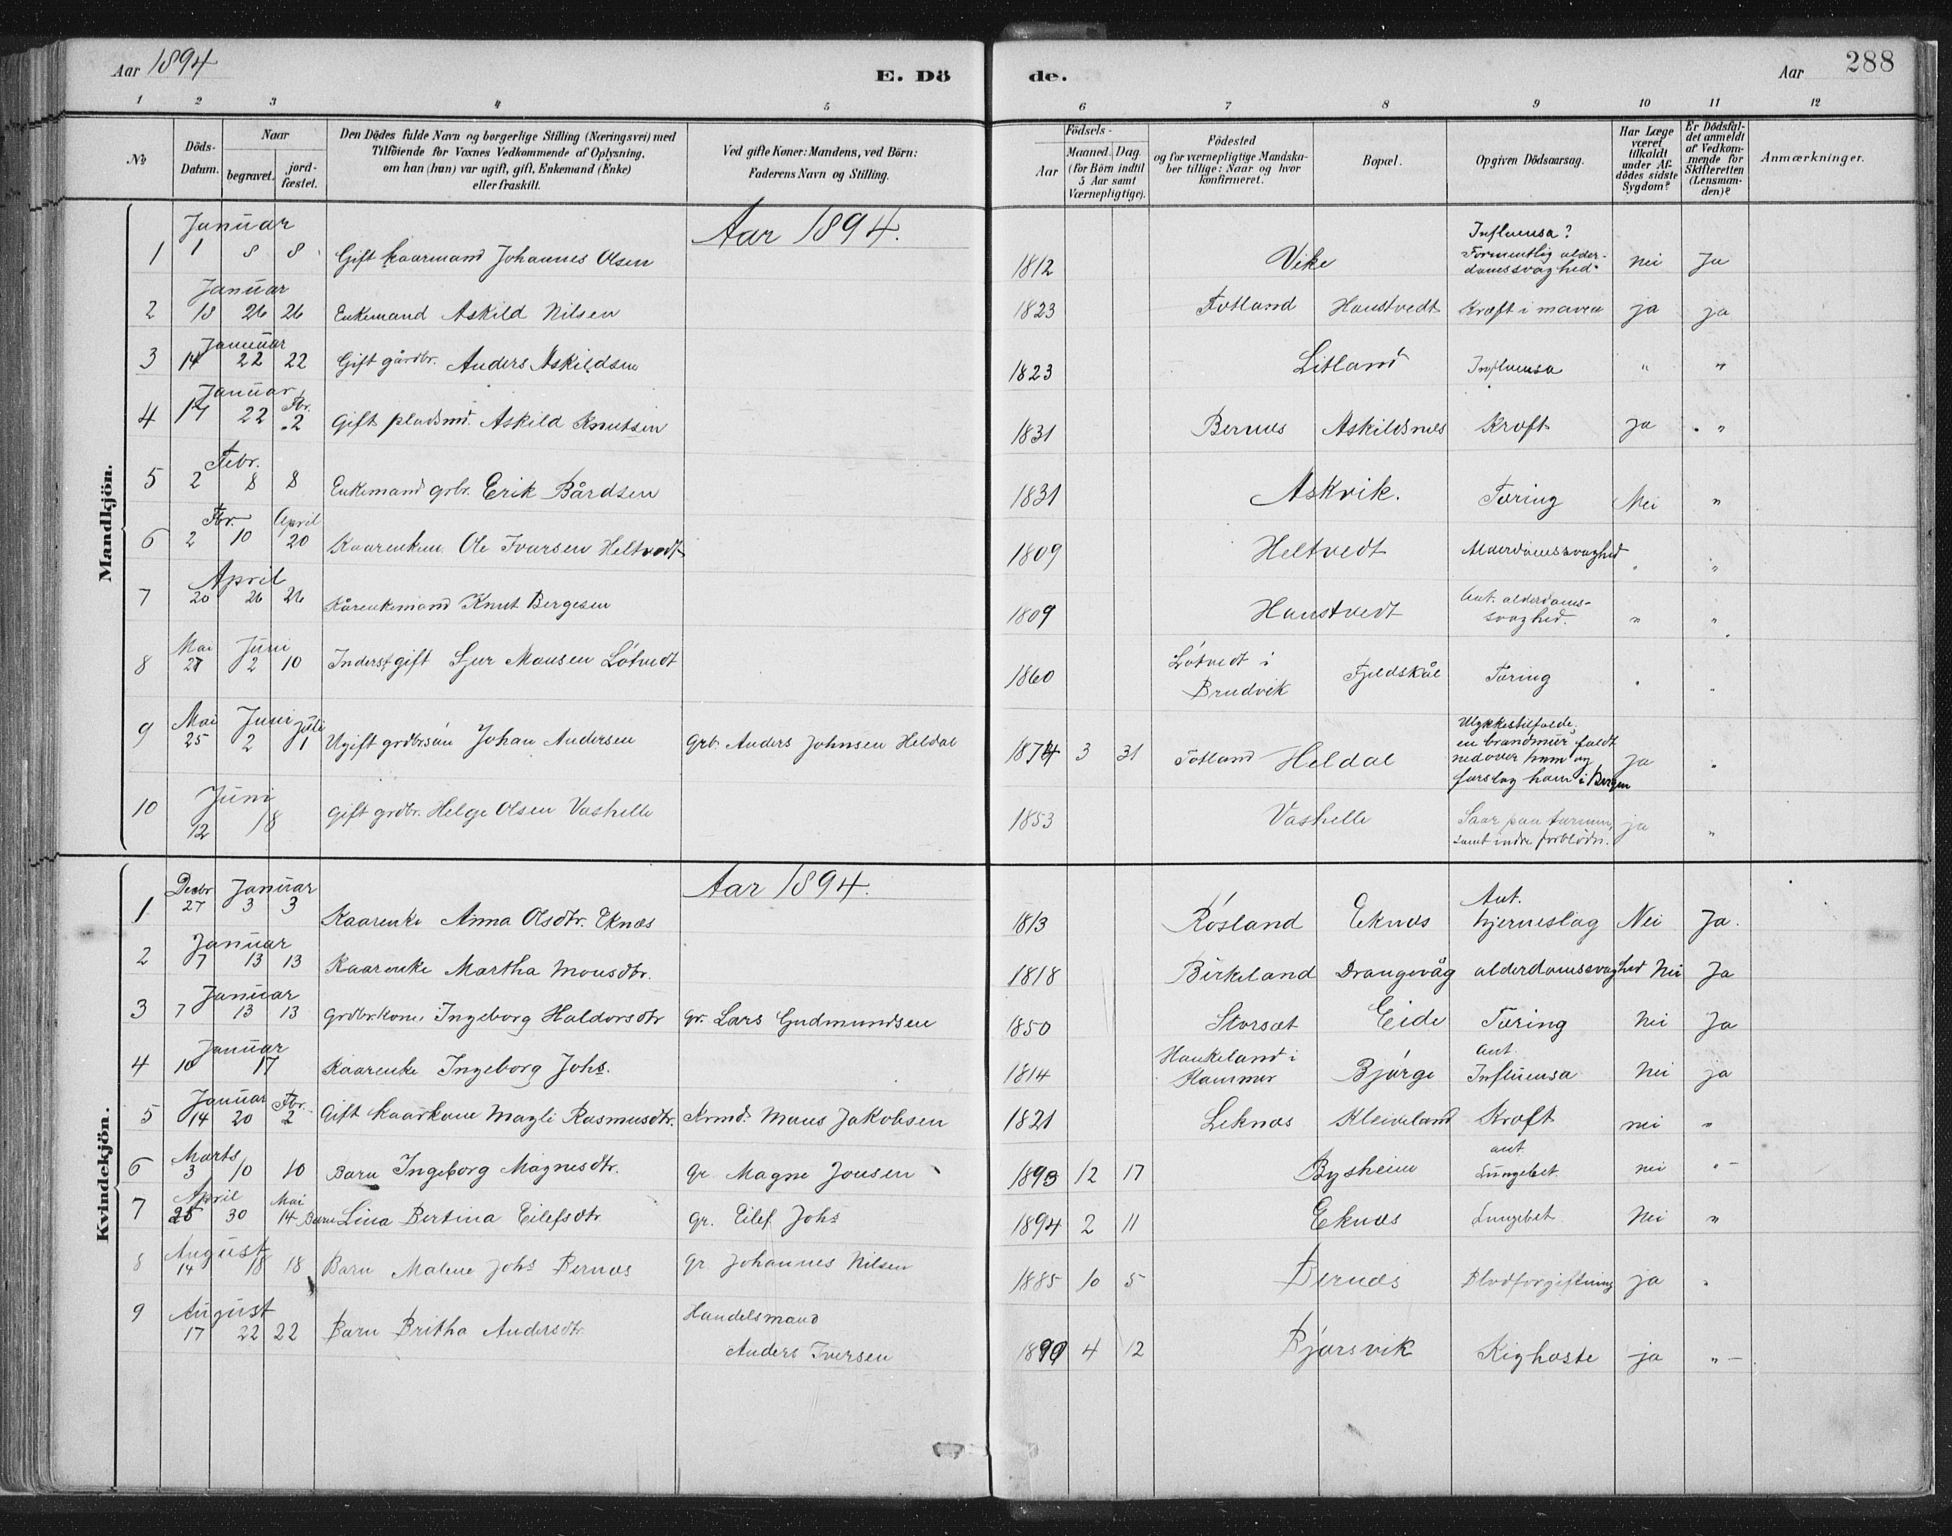 Aar 1894
E. Dö
de.
Aar
288
1 2 3 4 5 6 7 8 9 10 11 12
No
Döds-Datum.
Naar
begravet.
jord-fæstet.
Den Dödes fulde Navn og borgerlige Stilling (Næringsvei) med
Tilföiende for Voxnes Vedkommende af Oplysning,
om han (hun) var ugift, gift, Enkemand (Enke)
eller fraskilt.
Ved gifte Koner: Mandens, ved Börn:
Faderens Navn og Stilling.
Födsels-
Aar
Maaned. Dag.
(for Börn indtil
5 Aar samt
Værnepligtige).
Födested
og for værnepligtige Mandska-
ber tillige: Naar og hvor
konfirmeret.
Bopæl.
Opgiven Dödsaarsag.
Har Læge
været
tilkaldt
under Af-
dödes sidste
Sygdom?
Er Dödsfal-
det anmeldt
af Vedkom-
mende for
Skifteretten
(Lensman-
den)?
Anmærkninger.
Mandkjön.
Aar 1894.
Januar
1 1 8 8 Gift kaarmand Johannes Olsen 1812 Vike Influensa? Formentlig alder-
domssvaghed. Nei Ja
Januar
2 13 26 26 Enkemand Askild Nilsen 1823 Totland Haustvedt Kræft i maven ja ja
Januar
3 14 22 22 Gift gårdbr. Anders Askildsen 1823 Litland Influensa " "
Januar Fbr.
4 17 22 2 Gift pladsmd. Askild Knutsen 1831 Bernæs Askildsnes Kræft ja "
Febr.
5 2 8 8 Enkemand grbr. Erik Bårdsen 1831 Askvik. Tæring Nei "
Fbr. April
6 2 10 20 Kaarenkem. Ole Ivarsen Heltvedt 1809 Heltvedt Alderdomssvaghed " "
April
7 20 26 26 Kårenkemand Knut Bergesen 1809 Haustvedt Ant. alderdoms-
svaghed. " "
Mai Juni
8 27 2 10 Inderst gift Sjur Monsen Lötvedt 1860 Lötvedt i
Brudvik Fjeldskål Tæring " "
Mai Juni Juli
9 25 2 1 Ugift grdbrsön Johan Andersen Grb. Anders Johnsen Heldal 1874 3 31 Totland Heldal Ulykkestilfælde,
en brandmur faldt
nedover ham og
forslog ham i Bergen Ja "
Juni
10 12 18 Gift grdbr. Helge Olsen Vashelle 1853 Vashelle Saar paa
samt indre forblödn. ja "
Kvindekjön.
Aar 1894.
Decbr Januar
1 27 3 3 Kaarenke Anna Olsdtr. Eknæs 1813 Røsland Eknæs Ant.
hjerneslag Nei Ja.
Januar
2 7 13 13 Kaarenke Martha Monsdtr. 1818 Birkeland Drangevåg alderdomssvaghed Nei Ja
Januar
3 7 13 13 Grdbr.kone Ingeborg Haldorsdtr Gr. Lars Gudmundsen 1850 Storsæt Eide Tæring Nei Ja
Januar
4 10 17 Kaarenke Ingeborg Johs. 1814 Haukeland i
Hammer Bjørge Ant.
Influensa Nei ja
Januar Fbr.
5 14 20 2 Gift kaarkone Magli Rasmusdtr. Krmd. Mons Jakobsen 1821 Leknæs Kleiveland Kræft nei "
Marts
6 3 10 10 Barn Ingeborg Magnesdtr. Gr Magne Jonsen 1893 12 17 Bysheim ant.
Lungebet. nei "
April Mai
7 25 30 14 Barn Lina Bertina Eilefsdtr Gr. Eilef Johs 1894 2 11 Eknæs Lungebet Nei "
August
8 14 18 18 Barn Malene Johs Bernæs Gr Johannes Nilsen 1885 10 5 Bernæs Blodforgiftning ja "
August
9 17 22 22 Barn Britha Andersdtr. Handelsmand
Anders Iversen 1890 4 12 Bjørsvik Kighoste ja "